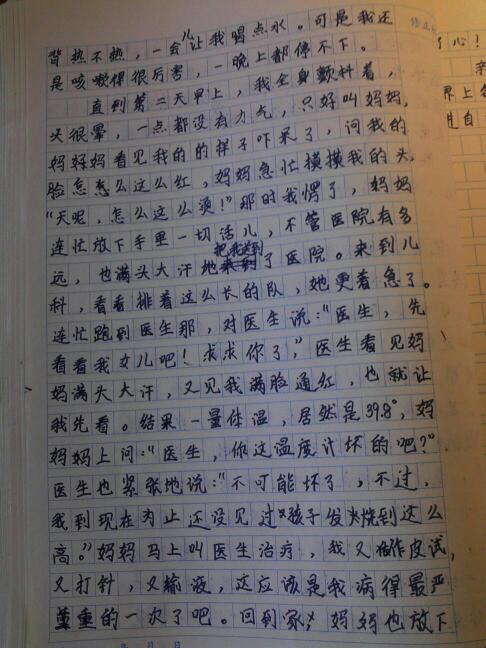 背热不热，一会儿让我喝点水。可是我还
是咳嗽得很厉害，一晚上都停不下。
直到第二天早上，我全身颤抖着，
头很晕，一点都没有力气，只好叫妈妈，
妈妈看见我的的样子吓呆了，问我的
脸怎怎么这么红，妈妈急忙摸摸我的头，
“天呢，怎么这么烫！”那时我愣了，妈妈
连忙放下手里一切活儿，不管医院有多
远，也满头大汗把我送到了医院。来到儿
科，看看排着这么长的队，她更着急了。
连忙跑到医生那，对医生说：“医生，先
看看我女儿吧！求求你了，”医生看见妈
妈满头大汗，又见我满脸通红，也就让
我先看。结果一量体温，居然是39.8°，妈
妈妈上问：“医生，你这温度计坏的吧？”
医生也紧张地说：“不可能坏了，不过，
我到现在为止还没见过孩子发烧到这么
高。”妈妈马上叫医生治疗，我又作皮试，
又打针，又输液，这应该是我病得最严
重的一次了吧。回到家，妈妈也放下
了心！
年 月 日